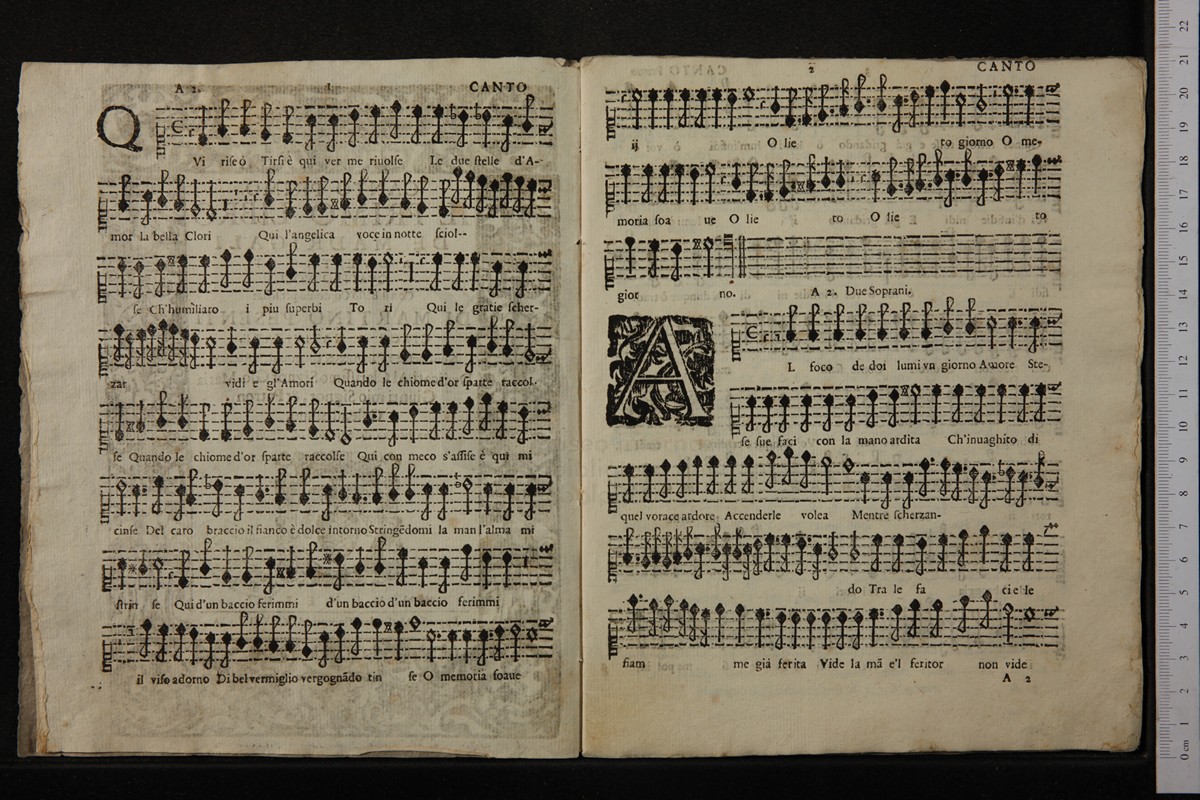 A 2. 1 CANTO
Q
Vi rise ò Tirsi è qui ver me riuolse Le due stelle d'A-
mor la bella Clori Qui l'angelica voce in notte sciol--
se Ch'humiliaro i piu superbi To ri Qui le gratie scher-
zar vidi e gl'Amori Quando le chiome d'or sparte raccol-
se Quando le chiome d'or sparte raccolse Qui con meco s'assise è qui mi
cinse Del caro braccio il fianco è dolce intorno Stringēdomi la man l'alma mi
strin se Qui d'un baccio ferimmi d'un baccio d'un baccio ferimmi
il viso adorno Di bel vermiglio vergognādo tin se O memoria soaue
2 CANTO
ij O lie to giorno O me-
moria soa ue O lie to O lie to
gior no. A 2. Due Soprani.
A
L foco de doi lumi vn giorno Amore Ste-
se sue faci con la mano ardita Ch'inuaghito di
quel vorace ardore Accenderle volea Mentre scherzan-
do Tra le fa ci e le
fiam me già ferita Vide la mā e'l feritor non vide
A 2
22
21
20
19
18
17
16
15
14
13
12
11
10
9
8
7
6
5
4
3
2
1
0 cm